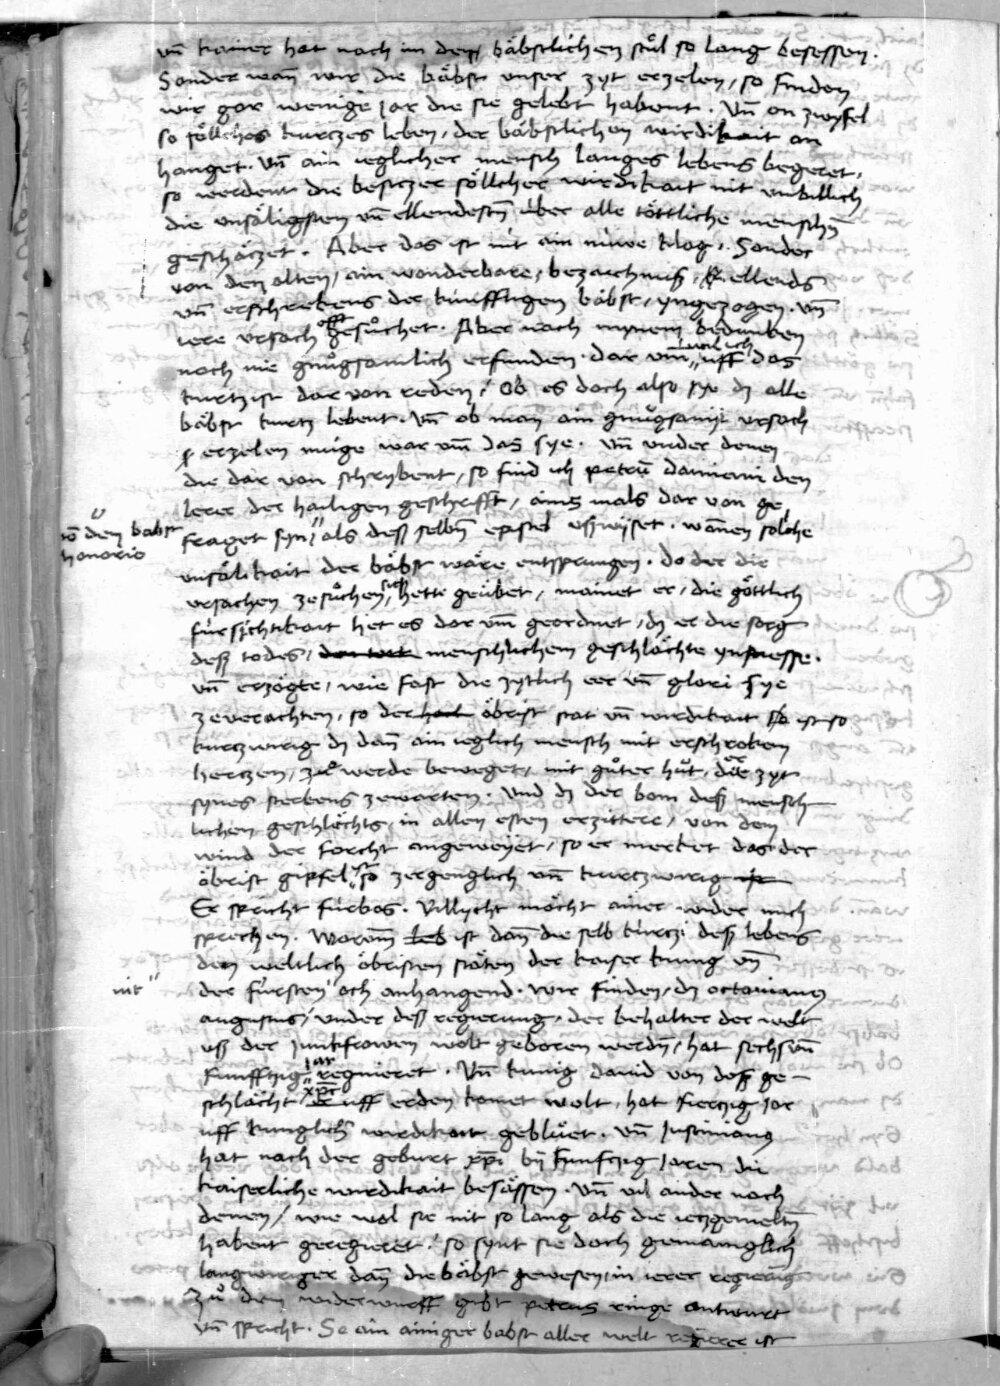 vn̄ kainer hat nach im den bäbstlichen stůl so lang besessen.
Sonder wan̄ wir die bäbst vnser zyt erzelen / so finden
wir gar wenige jar die sie gelebt habent. Vn̄ on zwyfel
so söllches kurczes leben / der bäbstlichen wirdikait an
hanget. Vn̄ ain ieglicher mensch langes lebens begeret,
so werdent die besiczer söllcher wirdikait nit vnbillich
die vnsäligsten vn̄ ellendestn̄ über alle töttliche menschn̄
geschäczet. Aber das ist nit ain nüwe klag. Sonder
von den alten / ain wonderbare bezaichnuß, ellends
vn̄ erschrekens der künfftigen bäbst / yngezogen. vn̄
iere vrsach offt gesůchet. Aber nach mynem bedunken
noch nie gnůgsamlich erfunden. dar vm̄ will ich uff das
kurtzist dar von reden / Ob es doch also sye dz alle
bäbst kurtz lebent. Vn̄ ob man ain gnůgsamm vrsach
erzelen müge war vm̄ das sye. Vn̄ vnder denen
die dar von schrybent / so find ich petrū damiani den
lerer der hailigen geschrifft / ains mals dar von ge
fraget syn / als dess selbn̄ epistel vsswyset. wannen solche
vō dem babst
honorio
vnsälikait der bäbst wäre entsprungen. do der die
vrsachen ze sůchen sich hette geübet / mainet er / die göttlich
fürsichtikait het es dar vm̄ geordnet / dz er die sorg
deß todes / menschlichem geschlächte ynstiesse.
vn̄ erzögte / wie fast die zytlich eer vn̄ glori sye
ze verachten / so der öbrist stat vn̄ wirdikait ist so
kurczwirig dz dan̄ ain ieglich mensch mit erschroken
herczen / werde beweget / mit gůter hůt / der zyt
synes sterbens ze warten. Vnd dz der bom deß mensch
lichen geschlächts in allen esten erzittere / von dem
wind der forcht angeweyet / so er merket das der
öbrist gipfel so zergenglich vn̄ kurczwirig
Er spricht fürbas. Villycht möcht ainer wider mich
sprechen. Worum̄ ist dan̄ die selb kürczi deß lebens
den weltlich öbristen stäten der kaiser kunig vn̄
der fürsten och anhangend. wir finden / dz octauianus
nit
augustus / vnder deß regierung / der behalter der welt
vss der junkfrowen wolt geboren werdn̄ / hat sechsvn̄
funfftzig jar regnieret. Vn̄ kunig dauid von deß ge-
schlächt xp̄c uff erden komet wolt / hat fierczig jar
uff kunglich wirdikait geblüet. vn̄ Justinianus
hat nach der geburt xp̄i by funfczig jaren die
kaiserliche wirdikait besässen. Vn̄ vil ander nach
denen / wie wol sie nit so lang als die ieczgemeltn̄
habent geregieret / so synt sie doch gemainglich
langwiriger dan̄ die bäbst gewesen / in ierer regierūg
Zů dem widerwurff gibt petrus ringe antwurt
vn̄ spricht. So ain ainiger babst aller welt regierer ist